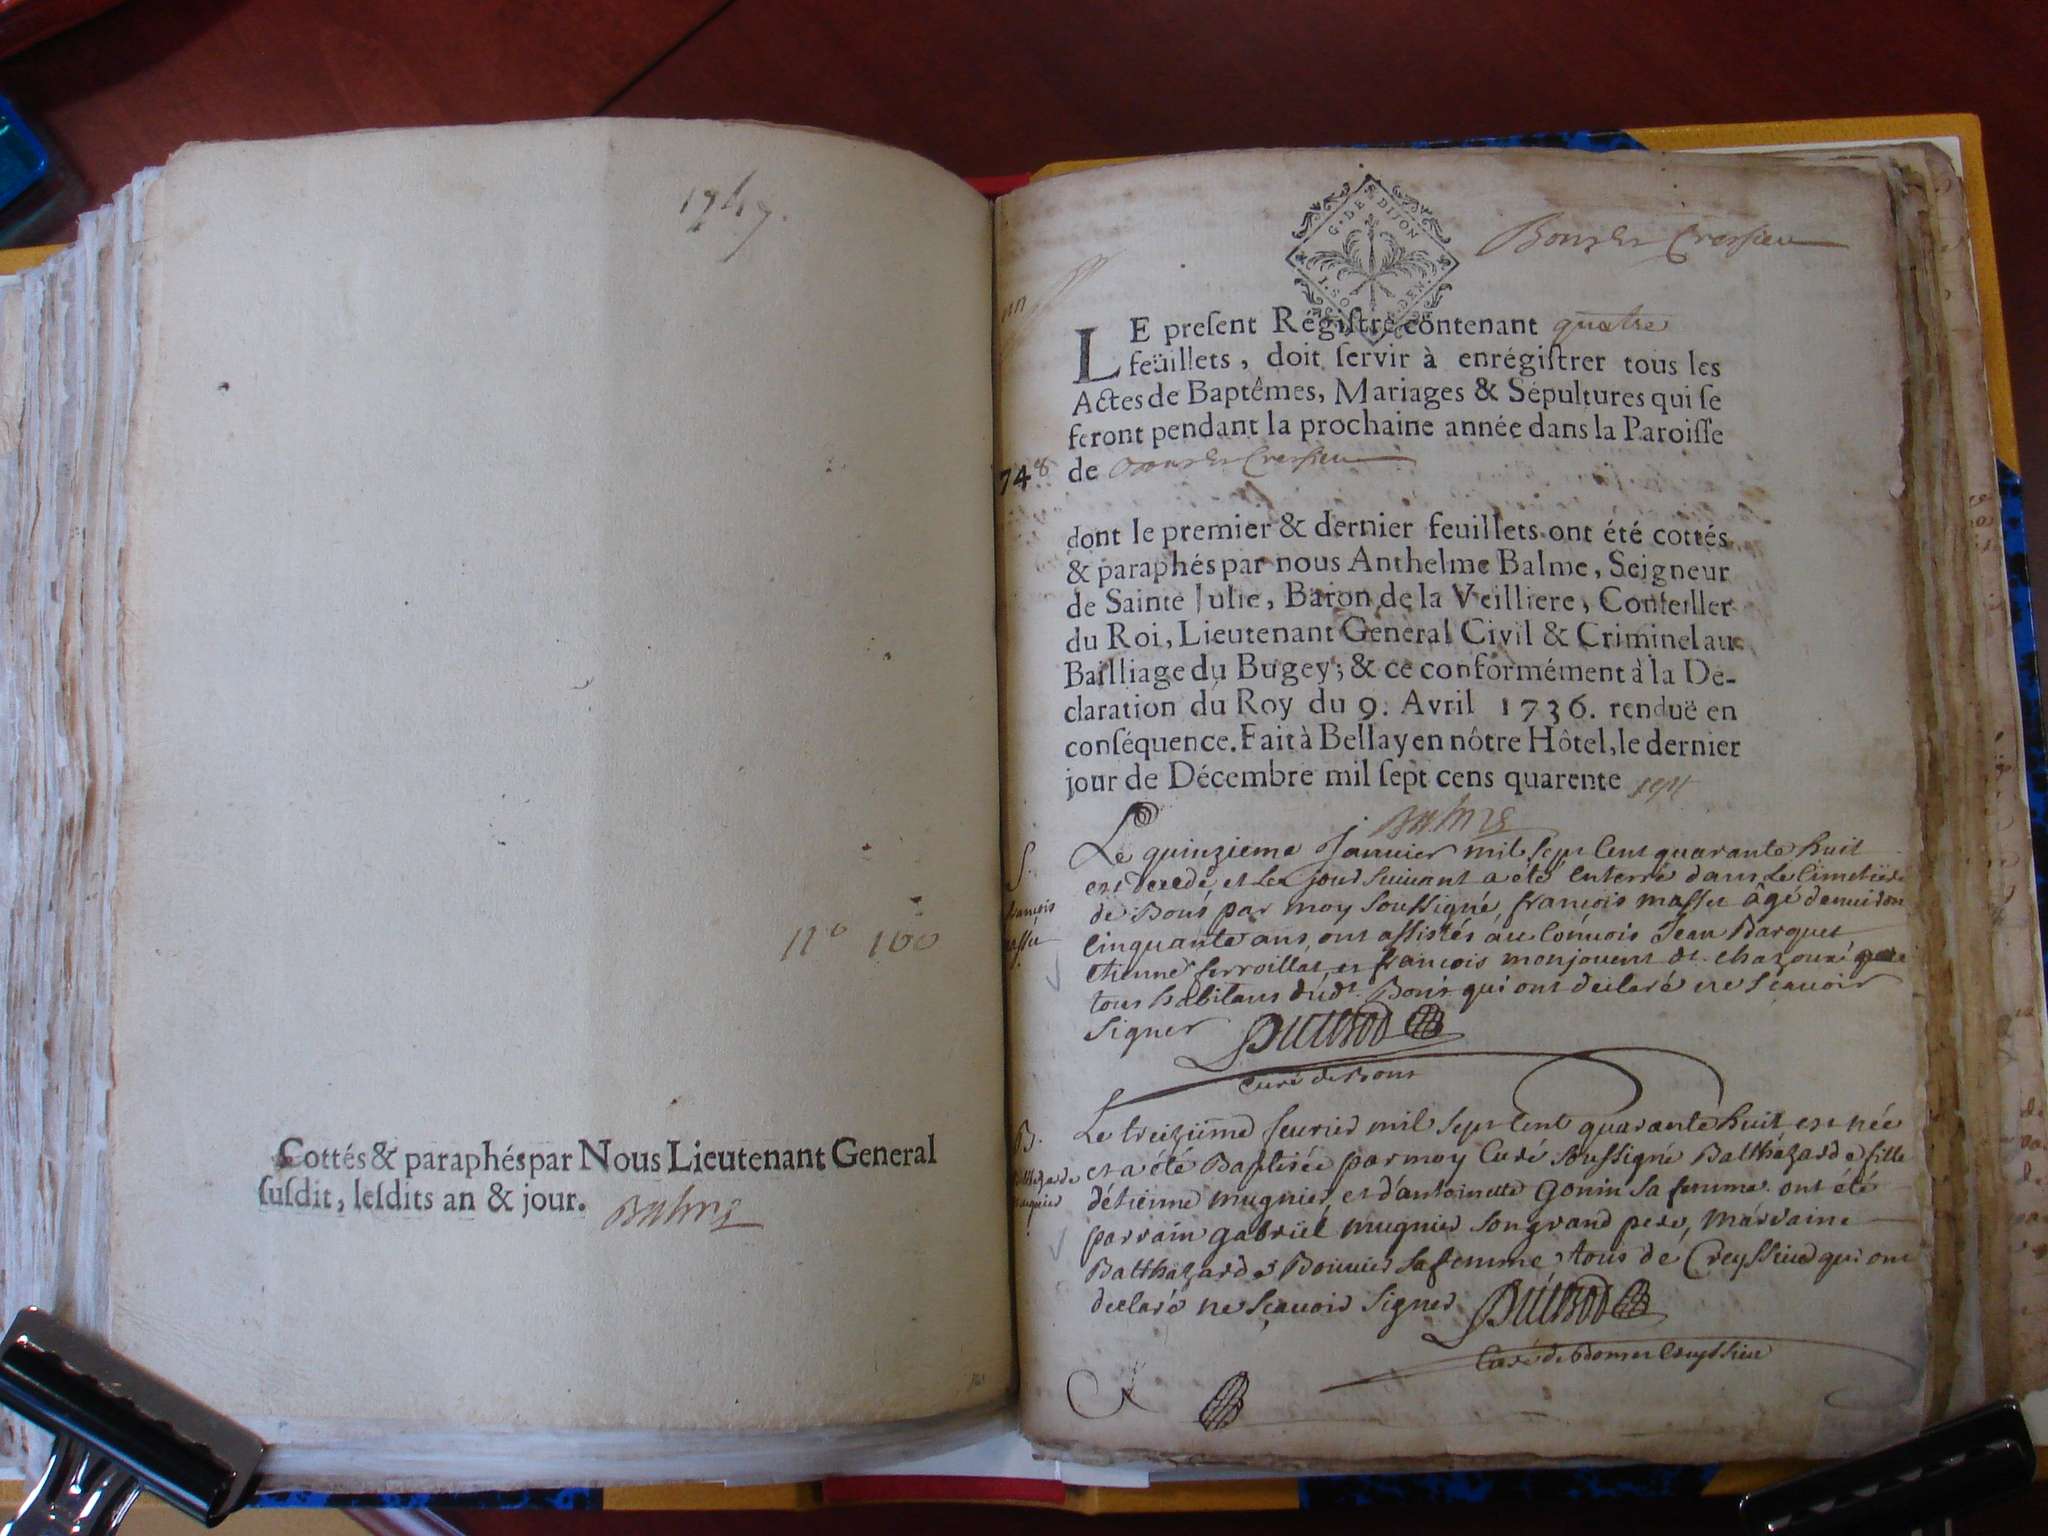 1747.
n° 100
Cottés & paraphés par Nous Lieutenant General
susdit, lesdits an & jour. Balme
G. DE DIJON
Bons Et Cressieu
LE present Régistre contenant quatre
feüillets, doit servir à enrégistrer tous les
Actes de Baptêmes, Mariages & Sépultures qui se
feront pendant la prochaine année dans la Paroisse
748
de Bons Et Cressieu
dont le premier & dernier feuillets ont été cottés
& paraphés par nous Anthelme Balme, Seigneur
de Sainte Julie, Baron de la Veilliere, Conseiller
du Roi, Lieutenant General Civil & Criminel au
Bailliage du Bugey; & ce conformément à la De-
claration du Roy du 9. Avril 1736. renduë en
conséquence. Fait à Bellay en nôtre Hôtel, le dernier
jour de Décembre mil sept cens quarente sept
Balme
S.
françois
massu
Le quinzieme Janvier mil sept cent quarante huit
est decedé, et le jour suivant a été enterré dans Le Cimetiere
de Bons par moy soussigné, françois massu âgé denviron
cinquante ans, ont assistés au convois Jean Barquet
etienne ferroillat, et françois monjouent de
tous habitans dudt. Bons qui ont declaré ne scavoir
signer
curé de Bons
B.
Balthazarde
mugnier
Le treizième fevrier mil sept cent quarante huit est née
et a été Baptisée par moy Curé soussigné Balthazarde fille
détienne mugnier, et d'antoinette Gonin sa femme. ont été
parrain gabriel mugnier son grand pere, marraine
Balthazarde Bonnier sa femme, tous de Creyssieu qui ont
declaré ne scavoir signer
Curé de Bons et Creyssieu